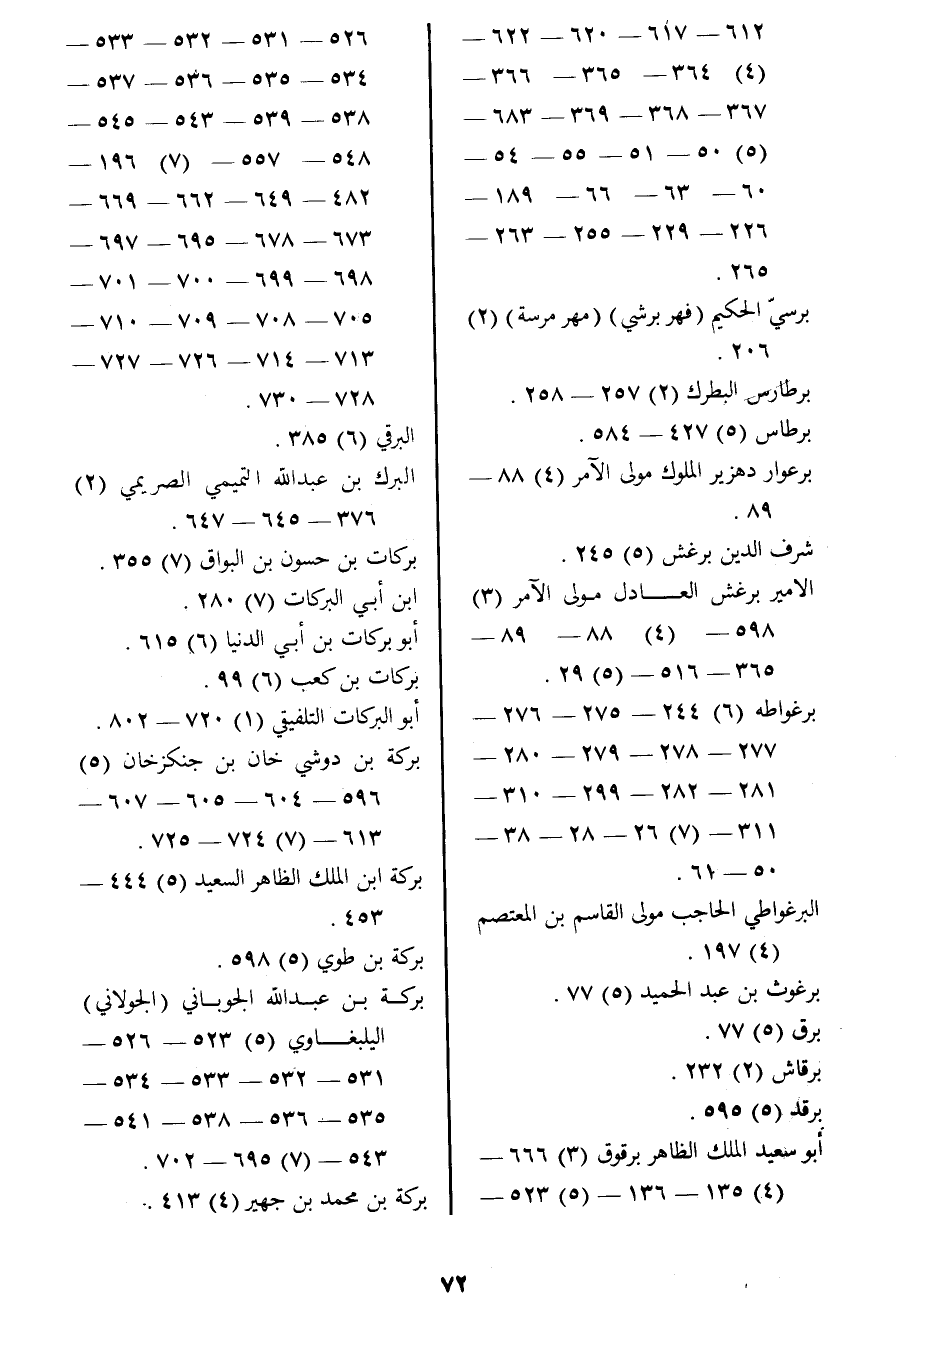 ٦١٢ — ٦١٧ — ٦٢٠ — ٦٢٢ —
(٤) ٣٦٤ — ٣٦٥ — ٣٦٦ —
٣٦٧ — ٣٦٨ — ٣٦٩ — ٦٨٣ —
(٥) ٥٠ — ٥١ — ٥٥ — ٥٤ —
٦٠ — ٦٣ — ٦٦ — ١٨٩ —
٢٢٦ — ٢٢٩ — ٢٥٥ — ٢٦٣ —
٢٦٥ .
برسيّ الحكيم (فهر برشي) (مهر مرسة) (٢)
٢٠٦ .
برطارس البطرك (٢) ٢٥٧ — ٢٥٨ .
برطاس (٥) ٤٢٧ — ٥٨٤ .
برعوار دهزير الملوك مولى الآمر (٤) ٨٨ —
٨٩ .
شرف الدين برغش (٥) ٢٤٥ .
الامير برغش العـــادل مولى الآمر (٣)
٥٩٨ — (٤) ٨٨ — ٨٩ —
٣٦٥ — ٥١٦ — (٥) ٢٩ .
برغواطه (٦) ٢٤٤ — ٢٧٥ — ٢٧٦ —
٢٧٧ — ٢٧٨ — ٢٧٩ — ٢٨٠ —
٢٨١ — ٢٨٢ — ٢٩٩ — ٣١٠ —
٣١١ — (٧) ٢٦ — ٢٨ — ٣٨ —
٥٠ — ٦١ .
البرغواطي الحاجب مولى القاسم بن المعتصم
(٤) ١٩٧ .
برغوث بن عبد الحميد (٥) ٧٧ .
برق (٥) ٧٧ .
برقاش (٢) ٢٣٢ .
برقد (٥) ٥٩٥ .
أبو سعيد الملك الظاهر برقوق (٣) ٦٦٦ —
(٤) ١٣٥ — ١٣٦ — (٥) ٥٢٣ —
٥٢٦ — ٥٣١ — ٥٣٢ — ٥٣٣ —
٥٣٤ — ٥٣٥ — ٥٣٦ — ٥٣٧ —
٥٣٨ — ٥٣٩ — ٥٤٣ — ٥٤٥ —
٥٤٨ — ٥٥٧ — (٧) ١٩٦ —
٤٨٢ — ٦٤٩ — ٦٦٢ — ٦٦٩ —
٦٧٣ — ٦٧٨ — ٦٩٥ — ٦٩٧ —
٦٩٨ — ٦٩٩ — ٧٠٠ — ٧٠١ —
٧٠٥ — ٧٠٨ — ٧٠٩ — ٧١٠ —
٧١٣ — ٧١٤ — ٧٢٦ — ٧٢٧ —
٧٢٨ — ٧٣٠ .
البرقي (٦) ٣٨٥ .
البرك بن عبدالله التميمي الصريمي (٢)
٣٧٦ — ٦٤٥ — ٦٤٧ .
بركات بن حسون بن البواق (٧) ٣٥٥ .
ابن أبي البركات (٧) ٢٨٠ .
أبو بركات بن أبي الدنيا (٦) ٦١٥ .
بركات بن كعب (٦) ٩٩ .
أبو البركات التلفيقي (١) ٧٢٠ — ٨٠٢ .
بركة بن دوشي خان بن جنكزخان (٥)
٥٩٦ — ٦٠٤ — ٦٠٥ — ٦٠٧ —
٦١٣ — (٧) ٧٢٤ — ٧٢٥ .
بركة ابن الملك الظاهر السعيد (٥) ٤٤٤ —
٤٥٣ .
بركة بن طوي (٥) ٥٩٨ .
بركــة بـن عبـدالله الجوبـاني (الجولاني)
اليلبغـــاوي (٥) ٥٢٣ — ٥٢٦ —
٥٣١ — ٥٣٢ — ٥٣٣ — ٥٣٤ —
٥٣٥ — ٥٣٦ — ٥٣٨ — ٥٤١ —
٥٤٣ — (٧) ٦٩٥ — ٧٠٢ .
بركة بن محمد بن جهير (٤) ٤١٣ .
٧٢